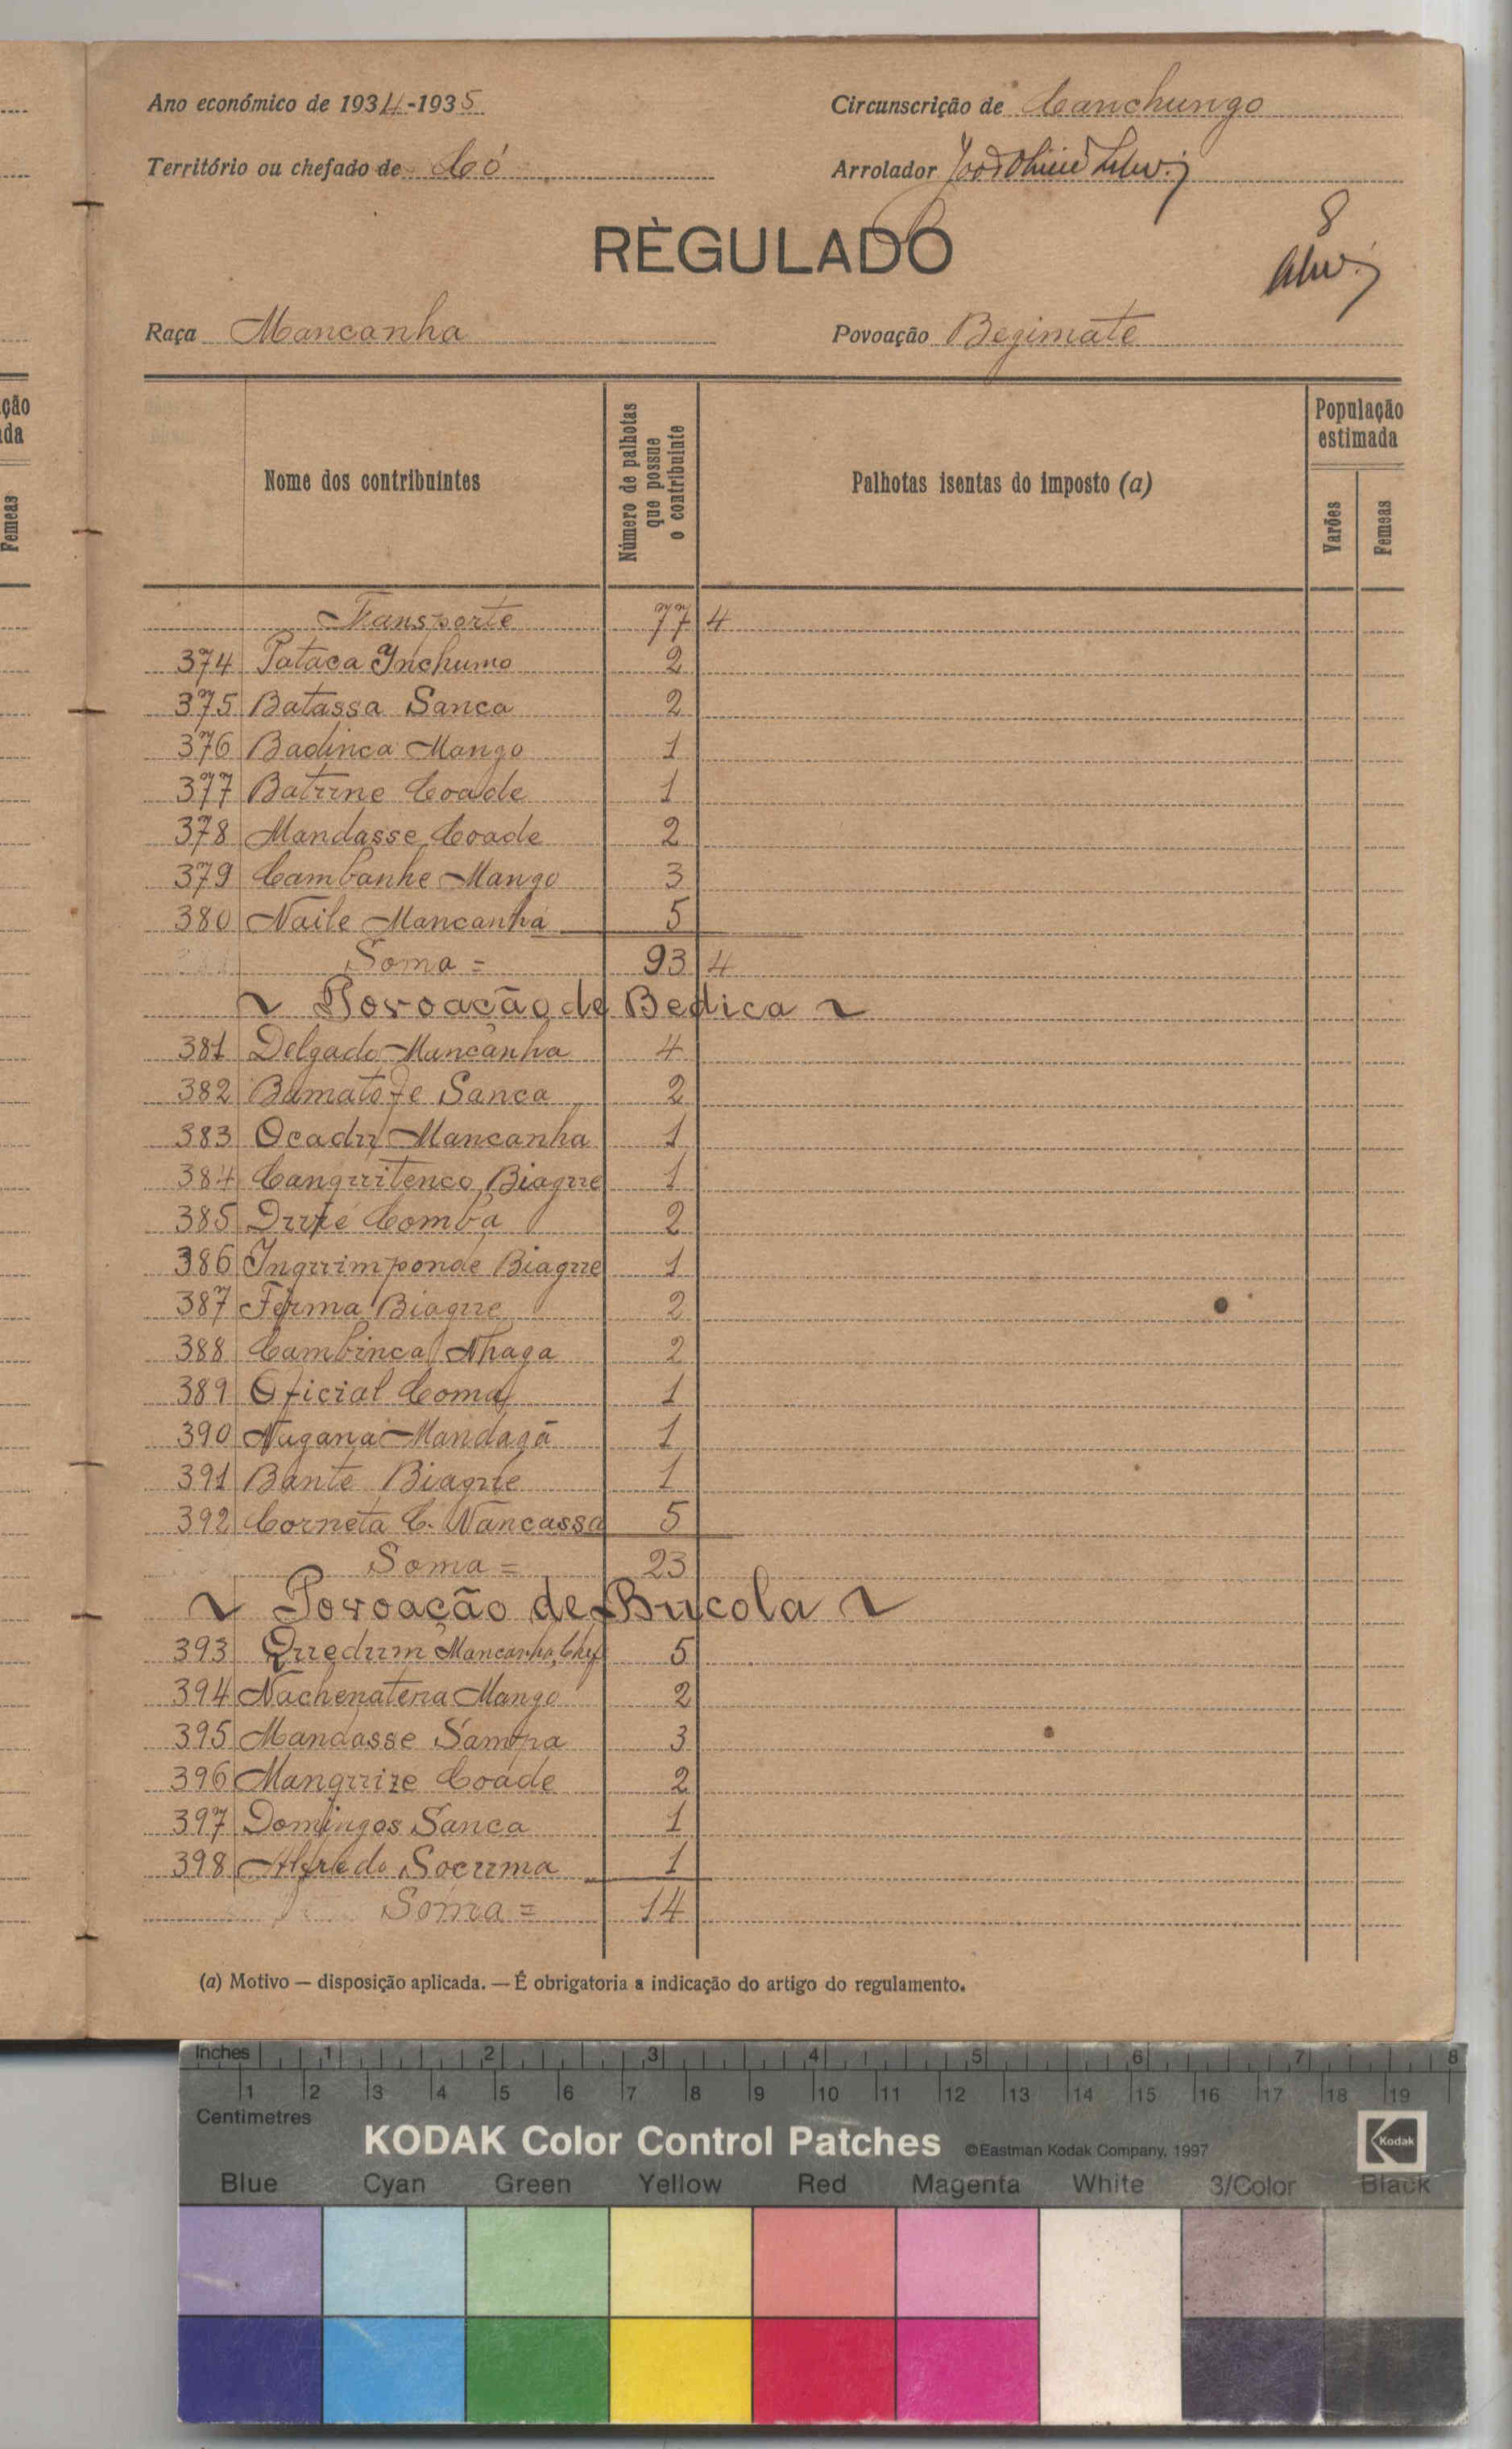 Ano económico de 1934-1935
Circunscrição de Canchungo
Território ou chefado de Có
Arrolador
8
RÈGULADO
Raça Mancanha
Povoação Begimate
Nome dos contribuintes
Número de palhotas que possue o contribuinte
Palhotas isentas do imposto (a)
População estimada
Varões
Femeas
ção
da
Femeas
Transporte 77 4
374 Pataca Inchumo 2
375 Batassa Sanca 2
376 Badinca Mango 1
377 Batune Coade 1
378 Mandasse Coade 2
379 Cambanhe Mango 3
380 Naile Mancanha 5
Soma = 93 4
~ Povoação de Bedica ~
381 Delgado Mancanha 4
382 Bamatofe Sanca 2
383 Ocadu Mancanha 1
384 Canquitenco Biague 1
385 Comba 2
386 Inquimponde Biague 1
387 Ferma Biague 2
388 Cambinca Nhaga 2
389 Oficial Coma 1
390 Nagana Mandagã 1
391 Bante Biague 1
392 Corneta C. Nancassa 5
Soma = 23
~ Povoação de Bucola ~
393 Quedum Mancanha, Chefe 5
394 Nachenatena Mango 2
395 Mandasse Sampa 3
396 Manguize Coade 2
397 Domingos Sanca 1
398 Alfredo Socuma 1
Soma = 14
(a) Motivo — disposição aplicada. — É obrigatoria a indicação do artigo do regulamento.
Inches 1 2 3 4 5 6 7 8
1 2 3 4 5 6 7 8 9 10 11 12 13 14 15 16 17 18 19
Centimetres
KODAK Color Control Patches ©Eastman Kodak Company, 1997 Kodak
Blue Cyan Green Yellow Red Magenta White 3/Color Black